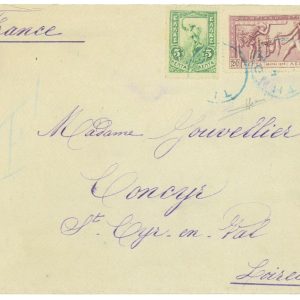 France
ΕΛΛΑΣ
5 5
ΛΕΠΤΑ ΛΕΠΤΑ
20
Madame Gouvellier
Concyr
St Cyr-en-Val
Loiret